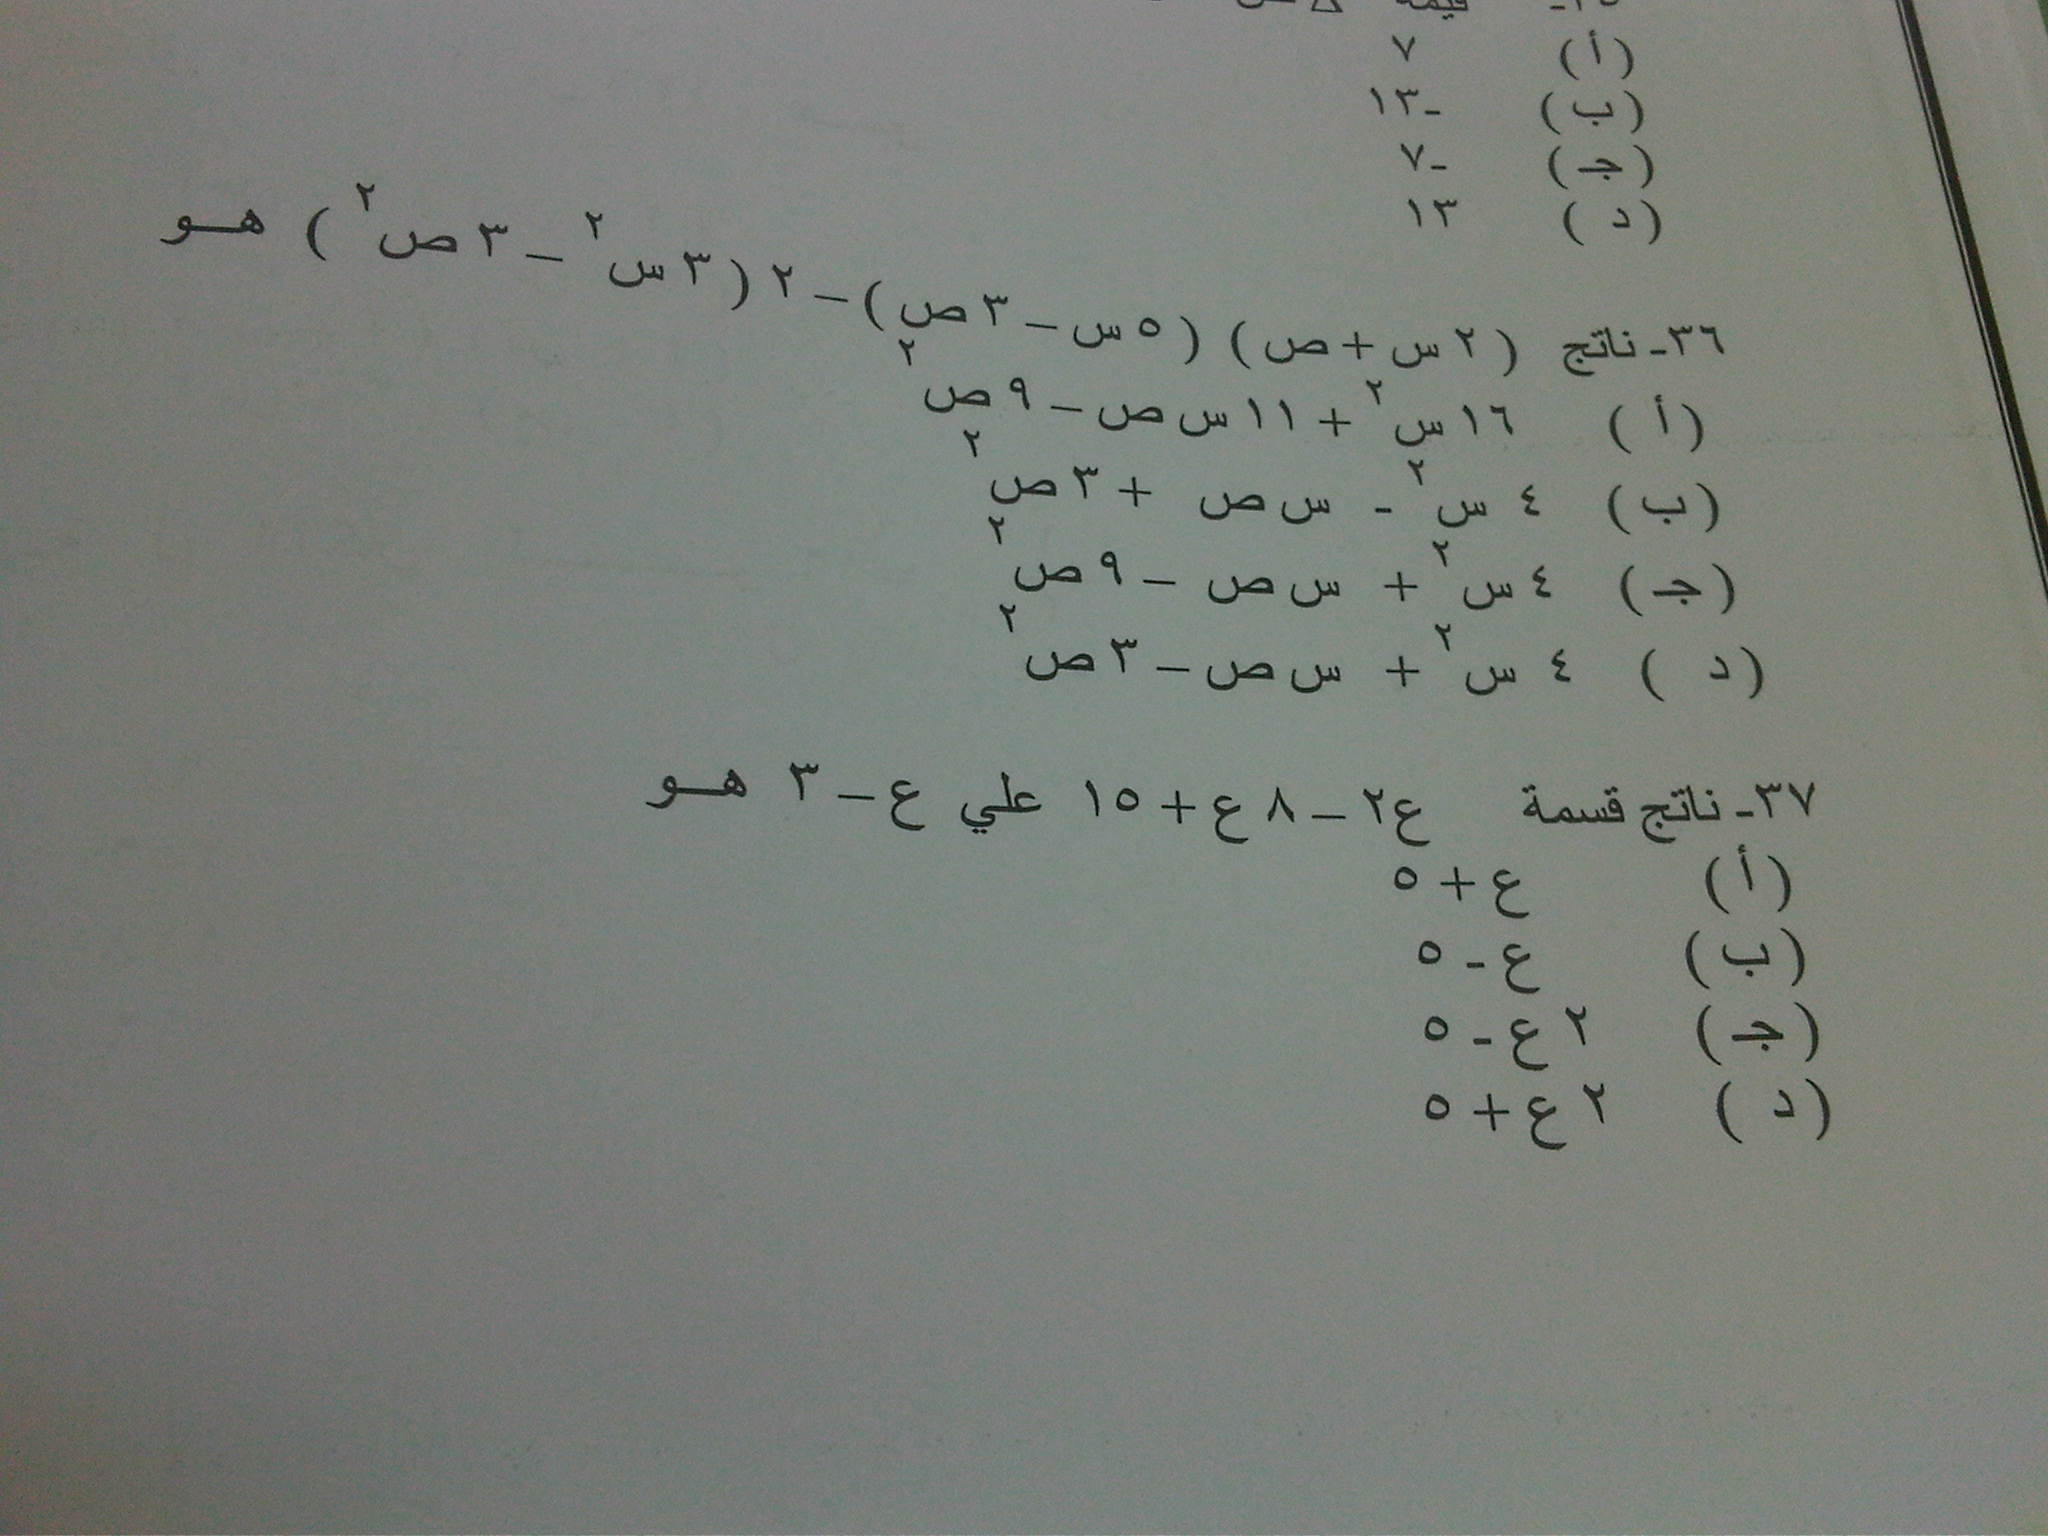 (أ) ٧
(ب) -١٣
(ج) -٧
(د) ١٣
٣٦- ناتج (٢س+ص) (٥س-٣ص)-٢(٣س٢-٣ص٢) هو
(أ) ١٦س٢+١١س ص-٩ص٢
(ب) ٤س٢ - س ص +٣ص٢
(جـ) ٤س٢ + س ص -٩ص٢
(د) ٤س٢ + س ص-٣ص٢
٣٧- ناتج قسمة ع٢-٨ع+١٥ علي ع-٣ هو
(أ) ع+٥
(ب) ع-٥
(جـ) ٢ع-٥
(د) ٢ع+٥